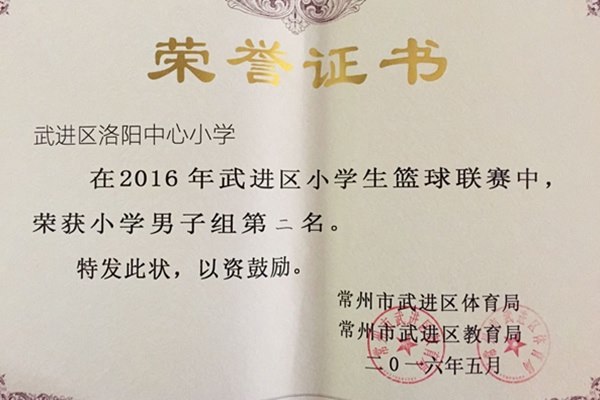 荣誉证书
武进区洛阳中心小学
在2016年武进区小学生篮球联赛中，
荣获小学男子组第二名。
特发此状，以资鼓励。
常州市武进区体育局
常州市武进区教育局
二０一六年五月